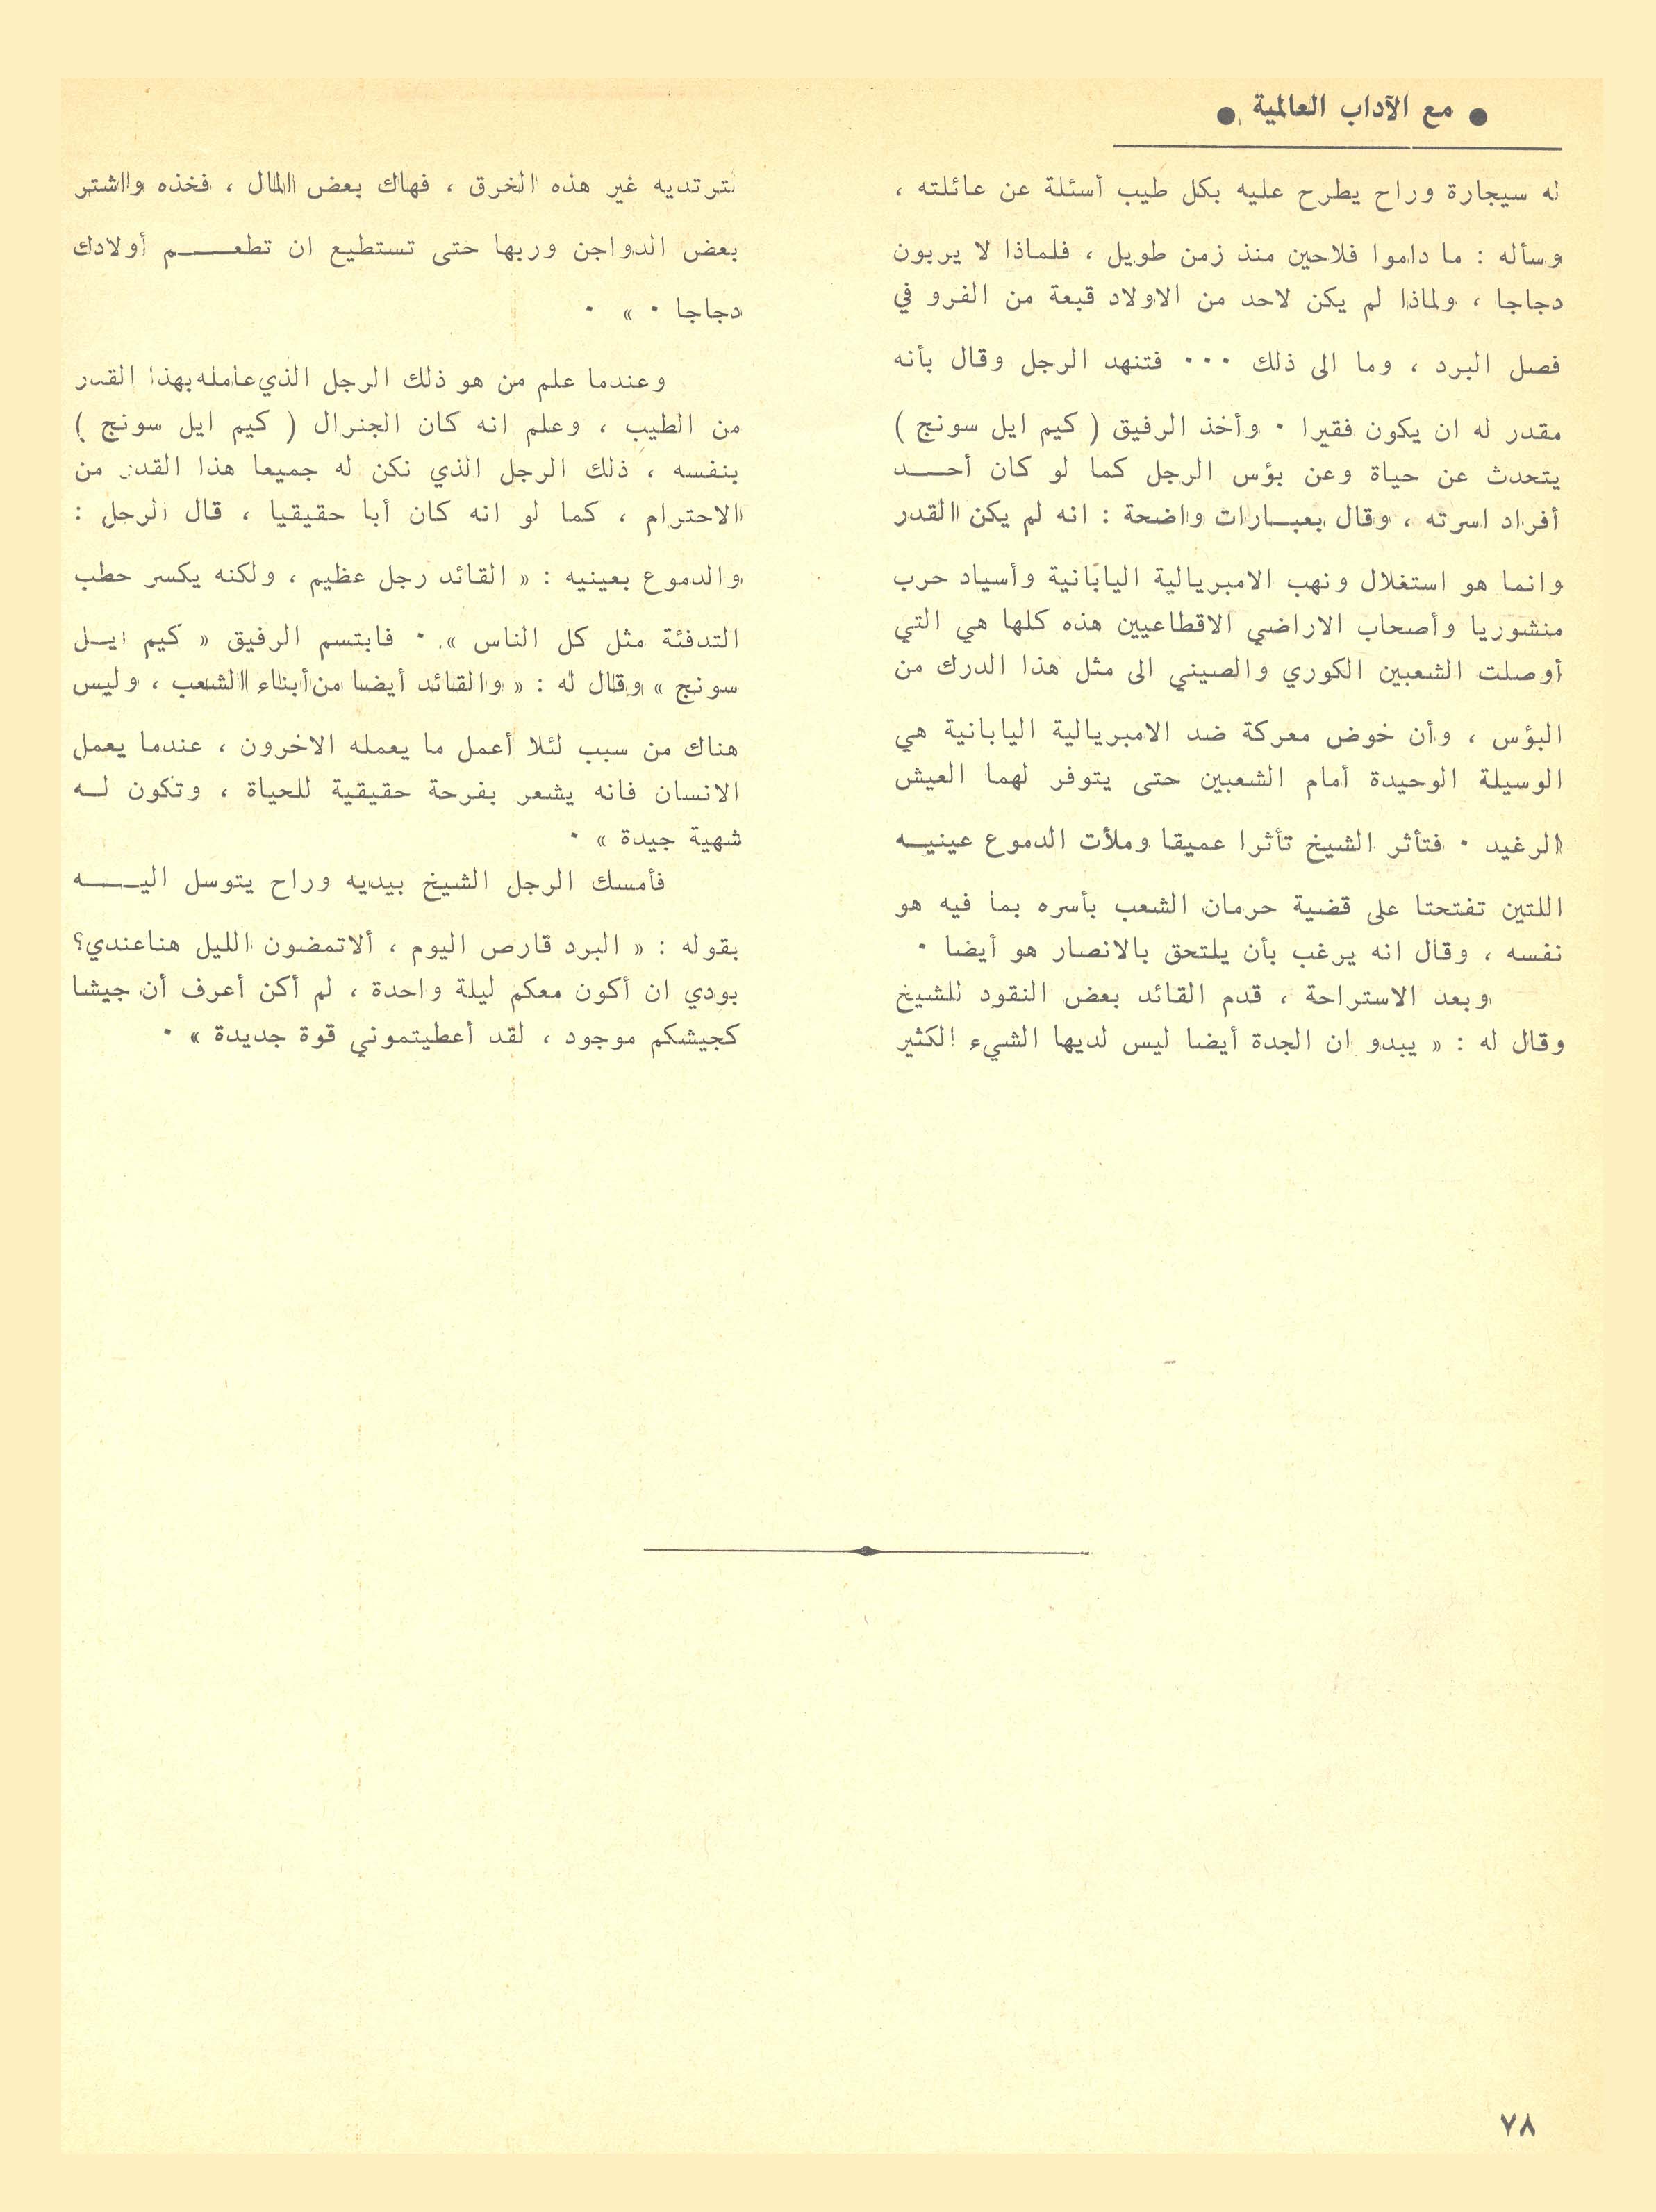 ● مع الآداب العالمية ●
له سيجارة وراح يطرح عليه بكل طيب أسئلة عن عائلته ،
وسأله : ما داموا فلاحين منذ زمن طويل ، فلماذا لا يربون
دجاجا ، ولماذا لم يكن لاحد من الاولاد قبعة من الفرو في
فصل البرد ، وما الى ذلك ٠٠٠ فتنهد الرجل وقال بأنه
مقدر له ان يكون فقيرا ٠ وأخذ الرفيق ( كيم ايل سونج )
يتحدث عن حياة وعن بؤس الرجل كما لو كان أحـــد
أفراد اسرته ، وقال بعبـارات واضحة : انه لم يكن القدر
وانما هو استغلال ونهب الامبريالية اليابانية وأسياد حرب
منشوريا وأصحاب الاراضي الاقطاعيين هذه كلها هي التي
أوصلت الشعبين الكوري والصيني الى مثل هذا الدرك من
البؤس ، وأن خوض معركة ضد الامبريالية اليابانية هي
الوسيلة الوحيدة أمام الشعبين حتى يتوفر لهما العيش
الرغيد ٠ فتأثر الشيخ تأثرا عميقا وملأت الدموع عينيـه
اللتين تفتحتا على قضية حرمان الشعب بأسره بما فيه هو
نفسه ، وقال انه يرغب بأن يلتحق بالانصار هو أيضا ٠
وبعد الاستراحة ، قدم القائد بعض النقود للشيخ
وقال له : « يبدو ان الجدة أيضا ليس لديها الشيء الكثير
لترتديه غير هذه الخرق ، فهاك بعض المال ، فخذه واشتر
بعض الدواجن وربها حتى تستطيع ان تطعـــم أولادك
دجاجا ٠ » ٠
وعندما علم من هو ذلك الرجل الذي عامله بهذا القدر
من الطيب ، وعلم انه كان الجنرال ( كيم ايل سونج )
بنفسه ، ذلك الرجل الذي نكن له جميعا هذا القدر من
الاحترام ، كما لو انه كان أبا حقيقيا ، قال الرجل :
والدموع بعينيه : « القائد رجل عظيم ، ولكنه يكسر حطب
التدفئة مثل كل الناس » ٠ فابتسم الرفيق « كيم ايـل
سونج » وقال له : « والقائد أيضا من أبناء الشعب ، وليس
هناك من سبب لئلا أعمل ما يعمله الاخرون ، عندما يعمل
الانسان فانه يشعر بفرحة حقيقية للحياة ، وتكون لـه
شهية جيدة » ٠
فأمسك الرجل الشيخ بيديه وراح يتوسل اليـــه
بقوله : « البرد قارص اليوم ، ألاتمضون الليل هناعندي؟
بودي ان أكون معكم ليلة واحدة ، لم أكن أعرف أن جيشا
كجيشكم موجود ، لقد أعطيتموني قوة جديدة » ٠
٧٨